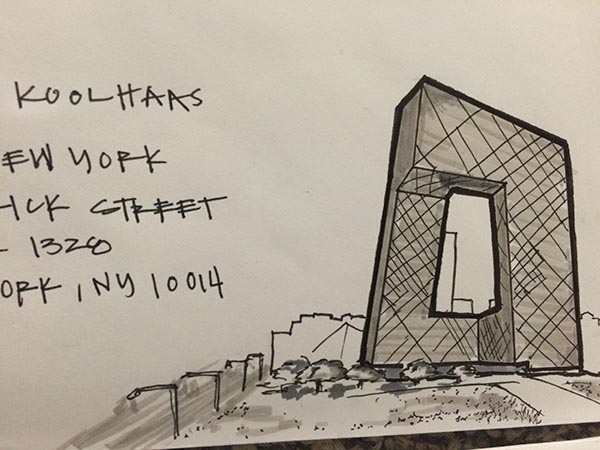 KOOLHAAS
EW YORK
ICK STREET
1320
ORK, NY 10014